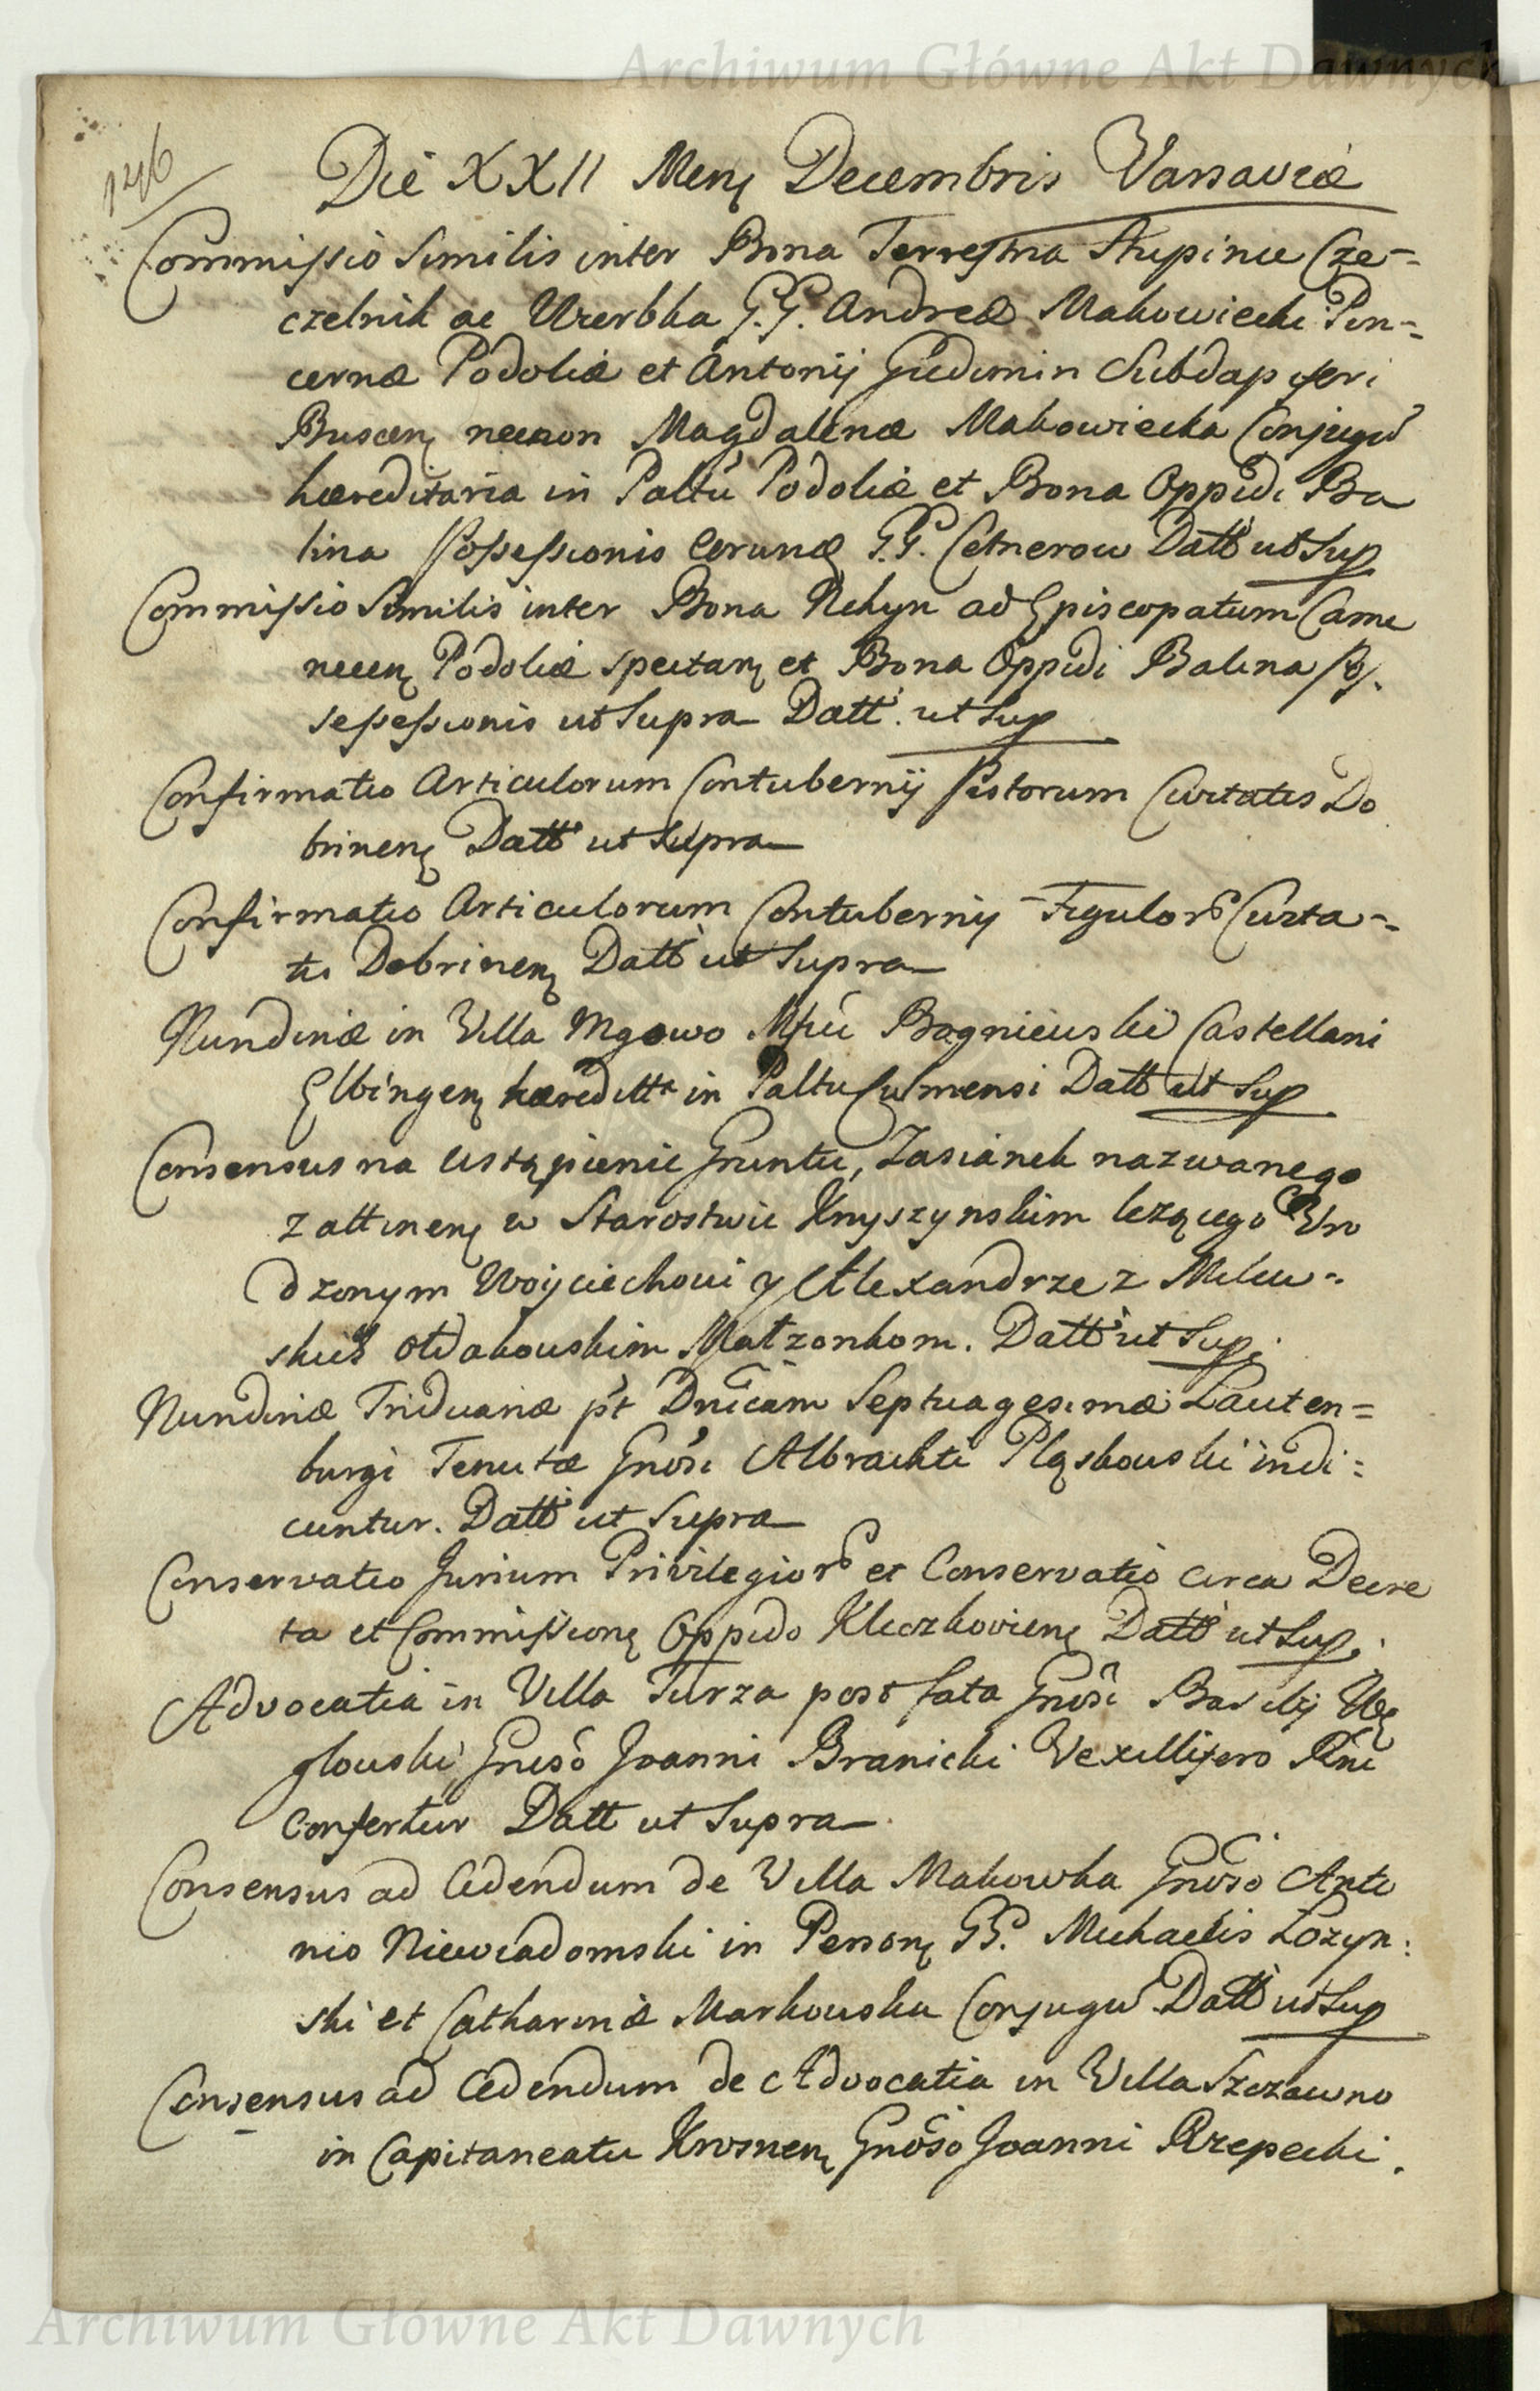 Archiwum Główne Akt Dawnych
1246
Die XXII Mens Decembris Varsaviæ
Commissio Similis inter Bona Terrestria Stupince Cze-
czelnik ac Uzerbka G.G. Andreæ Makowiecki Pin-
cernæ Podoliæ et Antonij Giedimin Subdapiferi
Buscens necnon Magdalenæ Makowiecka Conjugū
hæreditaria in Paltū Podoliæ et Bona Oppidi Ba
lina Possessionis Corund G.G. Cetnerow Datt ut Sup
Commissio Similis inter Bona Nehyn ad Episcopatum Came
necens Podoliæ spectans et Bona Oppidi Balina Pos
sessessionis ut Supra Datt. ut Sup
Confirmatio Articulorum Contubernij Pistorum Civitatis Do
brinens Datt ut Supra
Confirmatio Articulorum Contubernij Figulorū Civita-
tis Dobrinens Datt ut Supra
Nundinæ in Villa Mgowo Mfci Bagniewski Castellani
Elbingens hæreditta in Paltu Culmensi Datt ut Sup
Consensus na Ustąpienie Gruntu, Zasianek nazwanego
z attinens w Starostwie Knyszynskim lezącego Uro
dzonym Woyciechowi y Alexandrze z Milew-
skich Ołdakowskim Małzonkom. Datt ut Sup.
Nundinæ Triduanæ pt Dnicam Septuagesimæ Lauten=
burgi Tenutæ Gnosi Albrachti Pląskowski indi=
cuntur. Datt ut Supra
Conservatio Jurium Privilegiorū et Conservatio circa Decre
ta et Commissions Oppido Kleczkoviens Datt ut Sup.
Advocatia in Villa Turza post fata Gnosi Basilij Wę
glowski Gnoso Joanni Branicki Vexillifero Rni
Confertur Datt ut Supra
Consensus ad Cedendum de Villa Makowka Gnoso Anto
nio Niewiadomski in Persons GG. Michaelis Łozyn:
ski et Catharinæ Markowska Conjugū Datt ut Sup
Consensus ad Cedendum de Advocatia in Villa Szczawno
in Capitaneatu Krosnens Gnoso Joanni Rzepecki.
Archiwum Główne Akt Dawnych